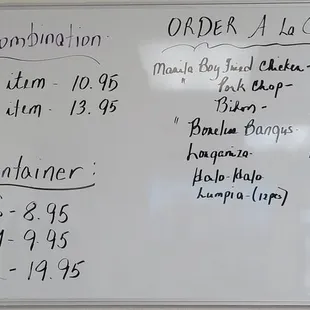 ombination
item - 10.95
item - 13.95
ntainer :
- 8.95
- 9.45
- 19.95
ORDER A La C
Manila Boy Fried Chicken -
" Pork Chop -
Bihon -
" Boneless Bangus.
Longaniza.
Halo-Halo
Lumpia - (12pcs)